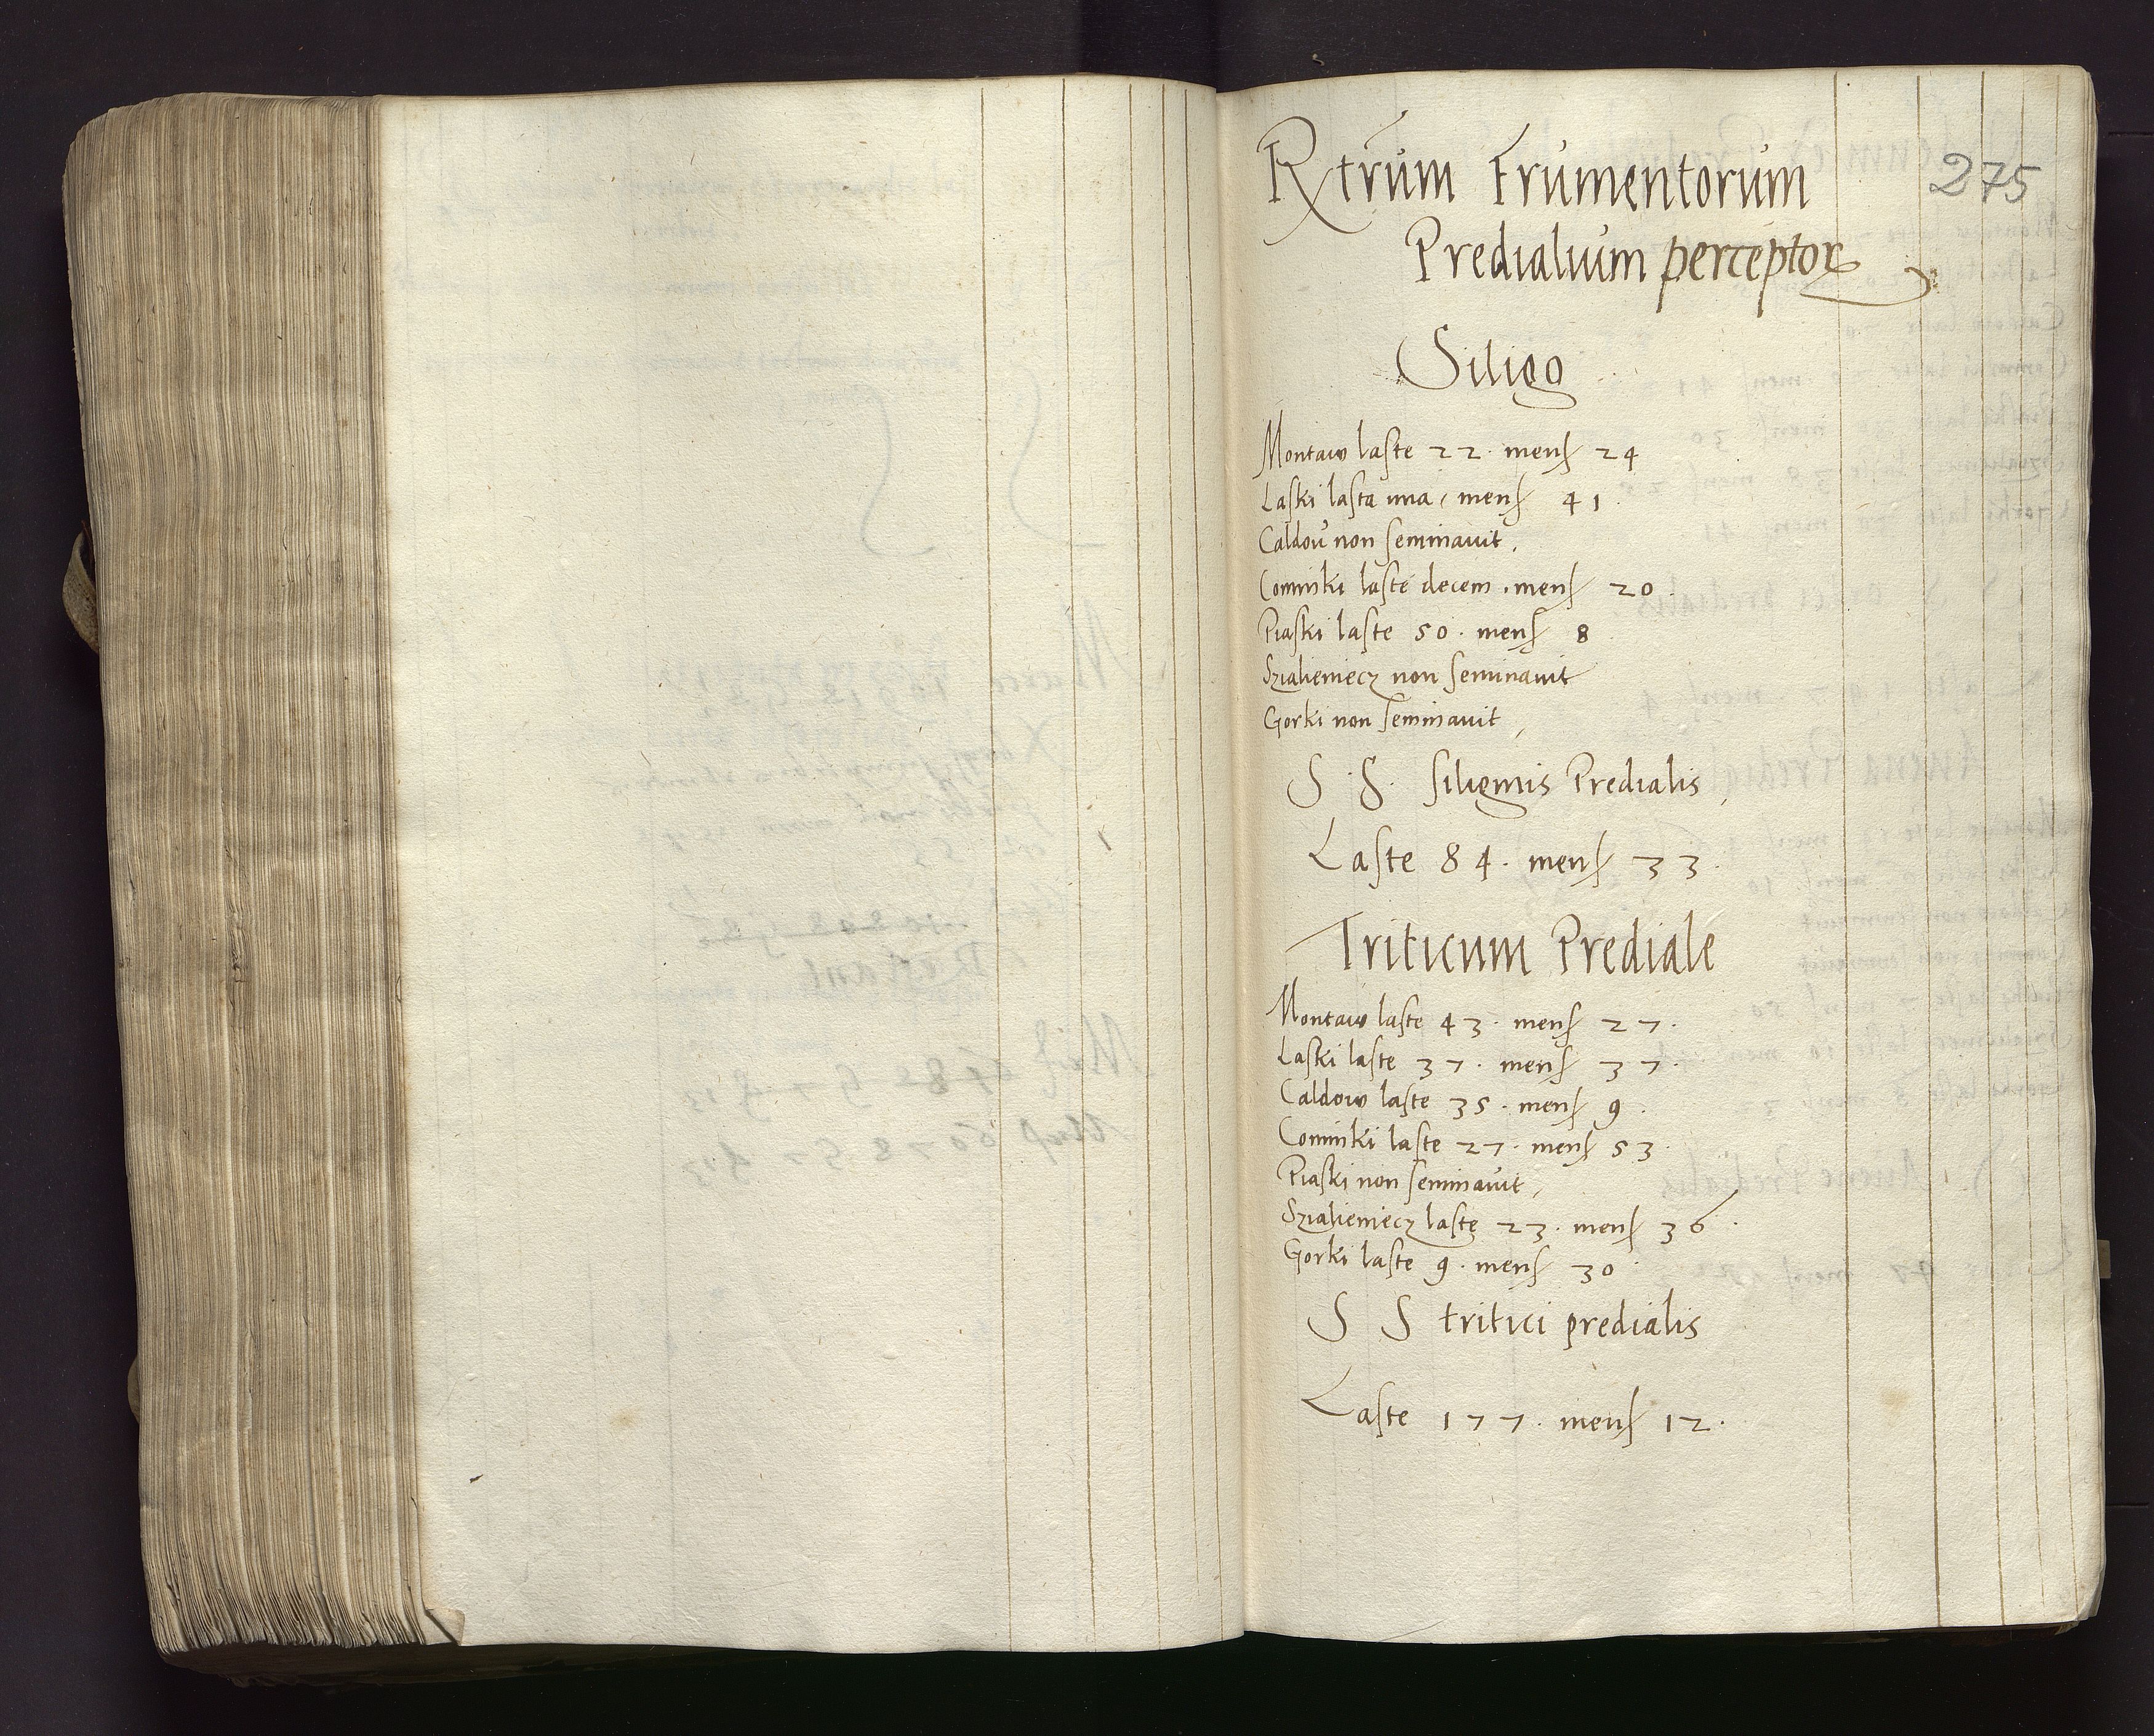 Rtrum Frumentorum
275
Predialium perceptor
Siligo
Montaw laste 22. mens 24
Laski lasta una, mens 41.
Caldow non seminavit,
Cominki laste decem. mens 20.
Piaski laste 50. mens 8
Szalieniecz non seminavit
Gorki non seminavit,
S S. siliginis Predialis,
Laste 84. mens 33.
Triticum Prediale
Montaw laste 43. mens 27.
Laski laste 37. mens 37.
Caldow laste 35. mens 9.
Cominki laste 27. mens 53
Piaski non seminavit,
Szalieniecz laste 23. mens 36.
Gorki laste 9. mens 30.
S S tritici predialis
Laste 177. mens 12.